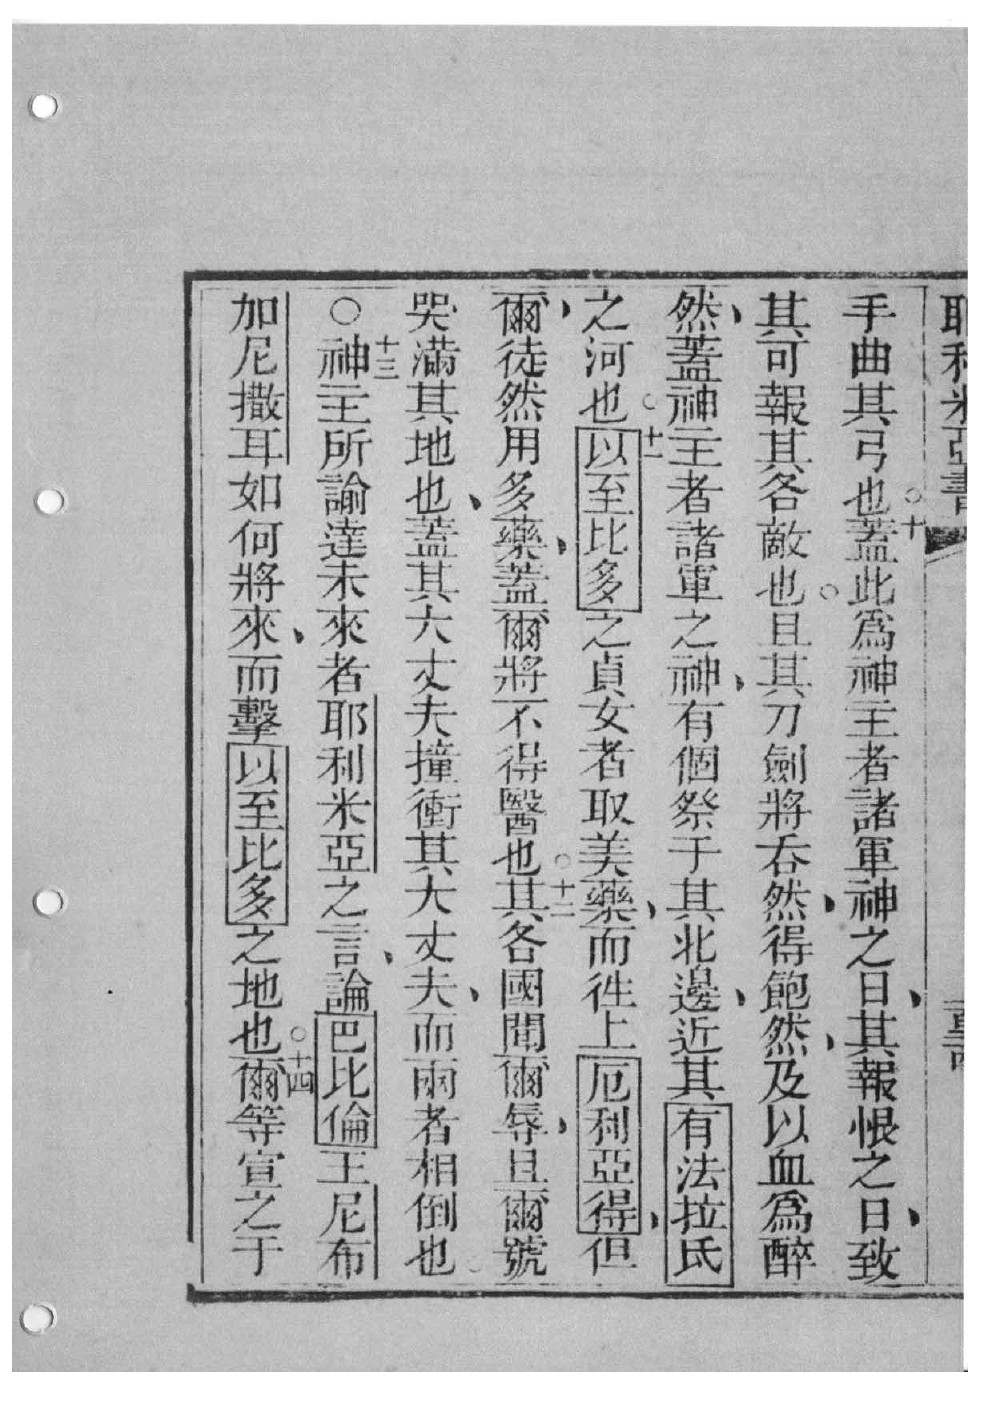 耶利米亞書
手曲其弓也○十蓋此爲神主者諸軍神之日、其報恨之日、致
其可報其各敵也○且其刀劍將吞然、得飽然、及以血爲醉
然、蓋神主者諸軍之神、有個祭于其北邊、近其有法拉氐
之河也○十一以至比多之貞女者取美藥、而徃上厄利亞得、但
爾、徒然用多藥、蓋爾將不得醫也○十二其各國聞爾辱、且爾號
哭滿其地也、蓋其大丈夫撞衝其大丈夫、而兩者相倒也○
○十三神主所諭達未來者耶利米亞之言、論巴比倫王尼布
加尼撒耳如何將來、而擊以至比多之地也○十四爾等宣之于